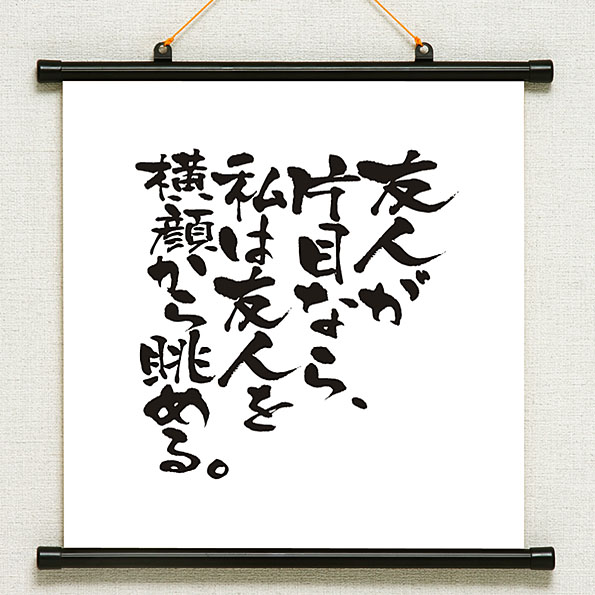 友人が
片目なら、
私は友人を
横顔から眺める。